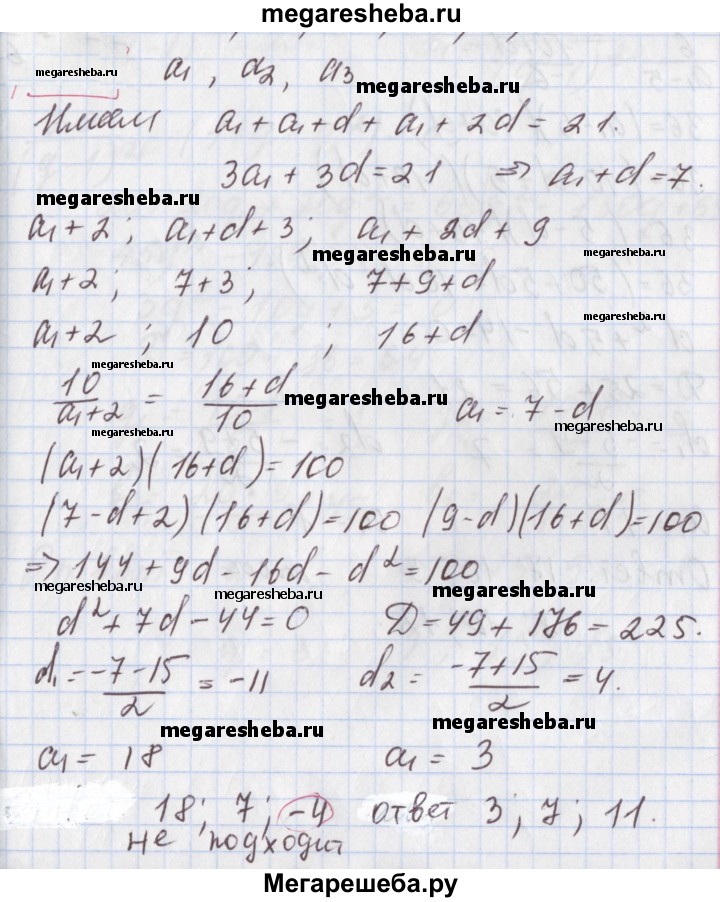 megaresheba.ru
megaresheba.ru a₁, a₂, a₃ megaresheba.ru
Имеем a₁ + a₁ + d + a₁ + 2d = 21.
3a₁ + 3d = 21 ⇒ a₁ + d = 7.
megaresheba.ru
a₁ + 2; a₁ + d + 3; a₁ + 2d + 9
megaresheba.ru
a₁ + 2; 7 + 3; 7 + 9 + d
megaresheba.ru
a₁ + 2; 10; 16 + d
megaresheba.ru
10/(a₁ + 2) = (16 + d)/10 megaresheba.ru a₁ = 7 - d
megaresheba.ru megaresheba.ru
(a₁ + 2)(16 + d) = 100
(7 - d + 2)(16 + d) = 100 (9 - d)(16 + d) = 100
⇒ 144 + 9d - 16d - d² = 100
megaresheba.ru megaresheba.ru megaresheba.ru
d² + 7d - 44 = 0 D = 49 + 176 = 225.
d₁ = (-7 - 15)/2 = -11 d₂ = (-7 + 15)/2 = 4.
megaresheba.ru megaresheba.ru
a₁ = 18 a₁ = 3
18; 7; -4 ответ 3; 7; 11.
не подходит
Мегарешеба.ру